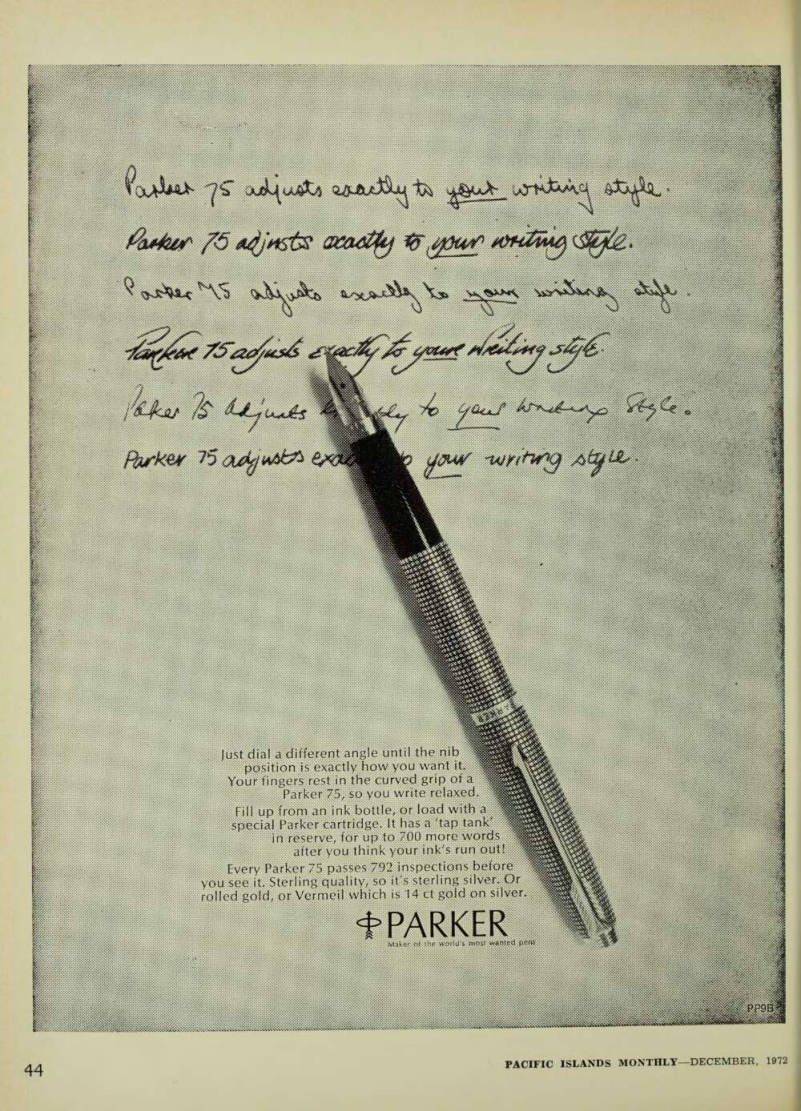 Parker 75 adjusts exactly to your writing style.
Parker 75 adjusts exactly to your writing style.
Parker 75 adjusts exactly to your writing style.
Parker 75 adjusts exactly to your writing style.
Parker 75 adjusts to your writing style.
Parker 75 adjusts your writing style.
PARKER
Just dial a different angle until the nib
position is exactly how you want it.
Your fingers rest in the curved grip of a
Parker 75, so you write relaxed.
Fill up from an ink bottle, or load with a
special Parker cartridge. It has a 'tap tank'
in reserve, for up to 700 more words
after you think your ink's run out!
Every Parker 75 passes 792 inspections before
you see it. Sterling quality, so it's sterling silver. Or
rolled gold, or Vermeil which is 14 ct gold on silver.
PARKER
Maker of the world's most wanted pens
PP9B
44
PACIFIC ISLANDS MONTHLY—DECEMBER, 1972